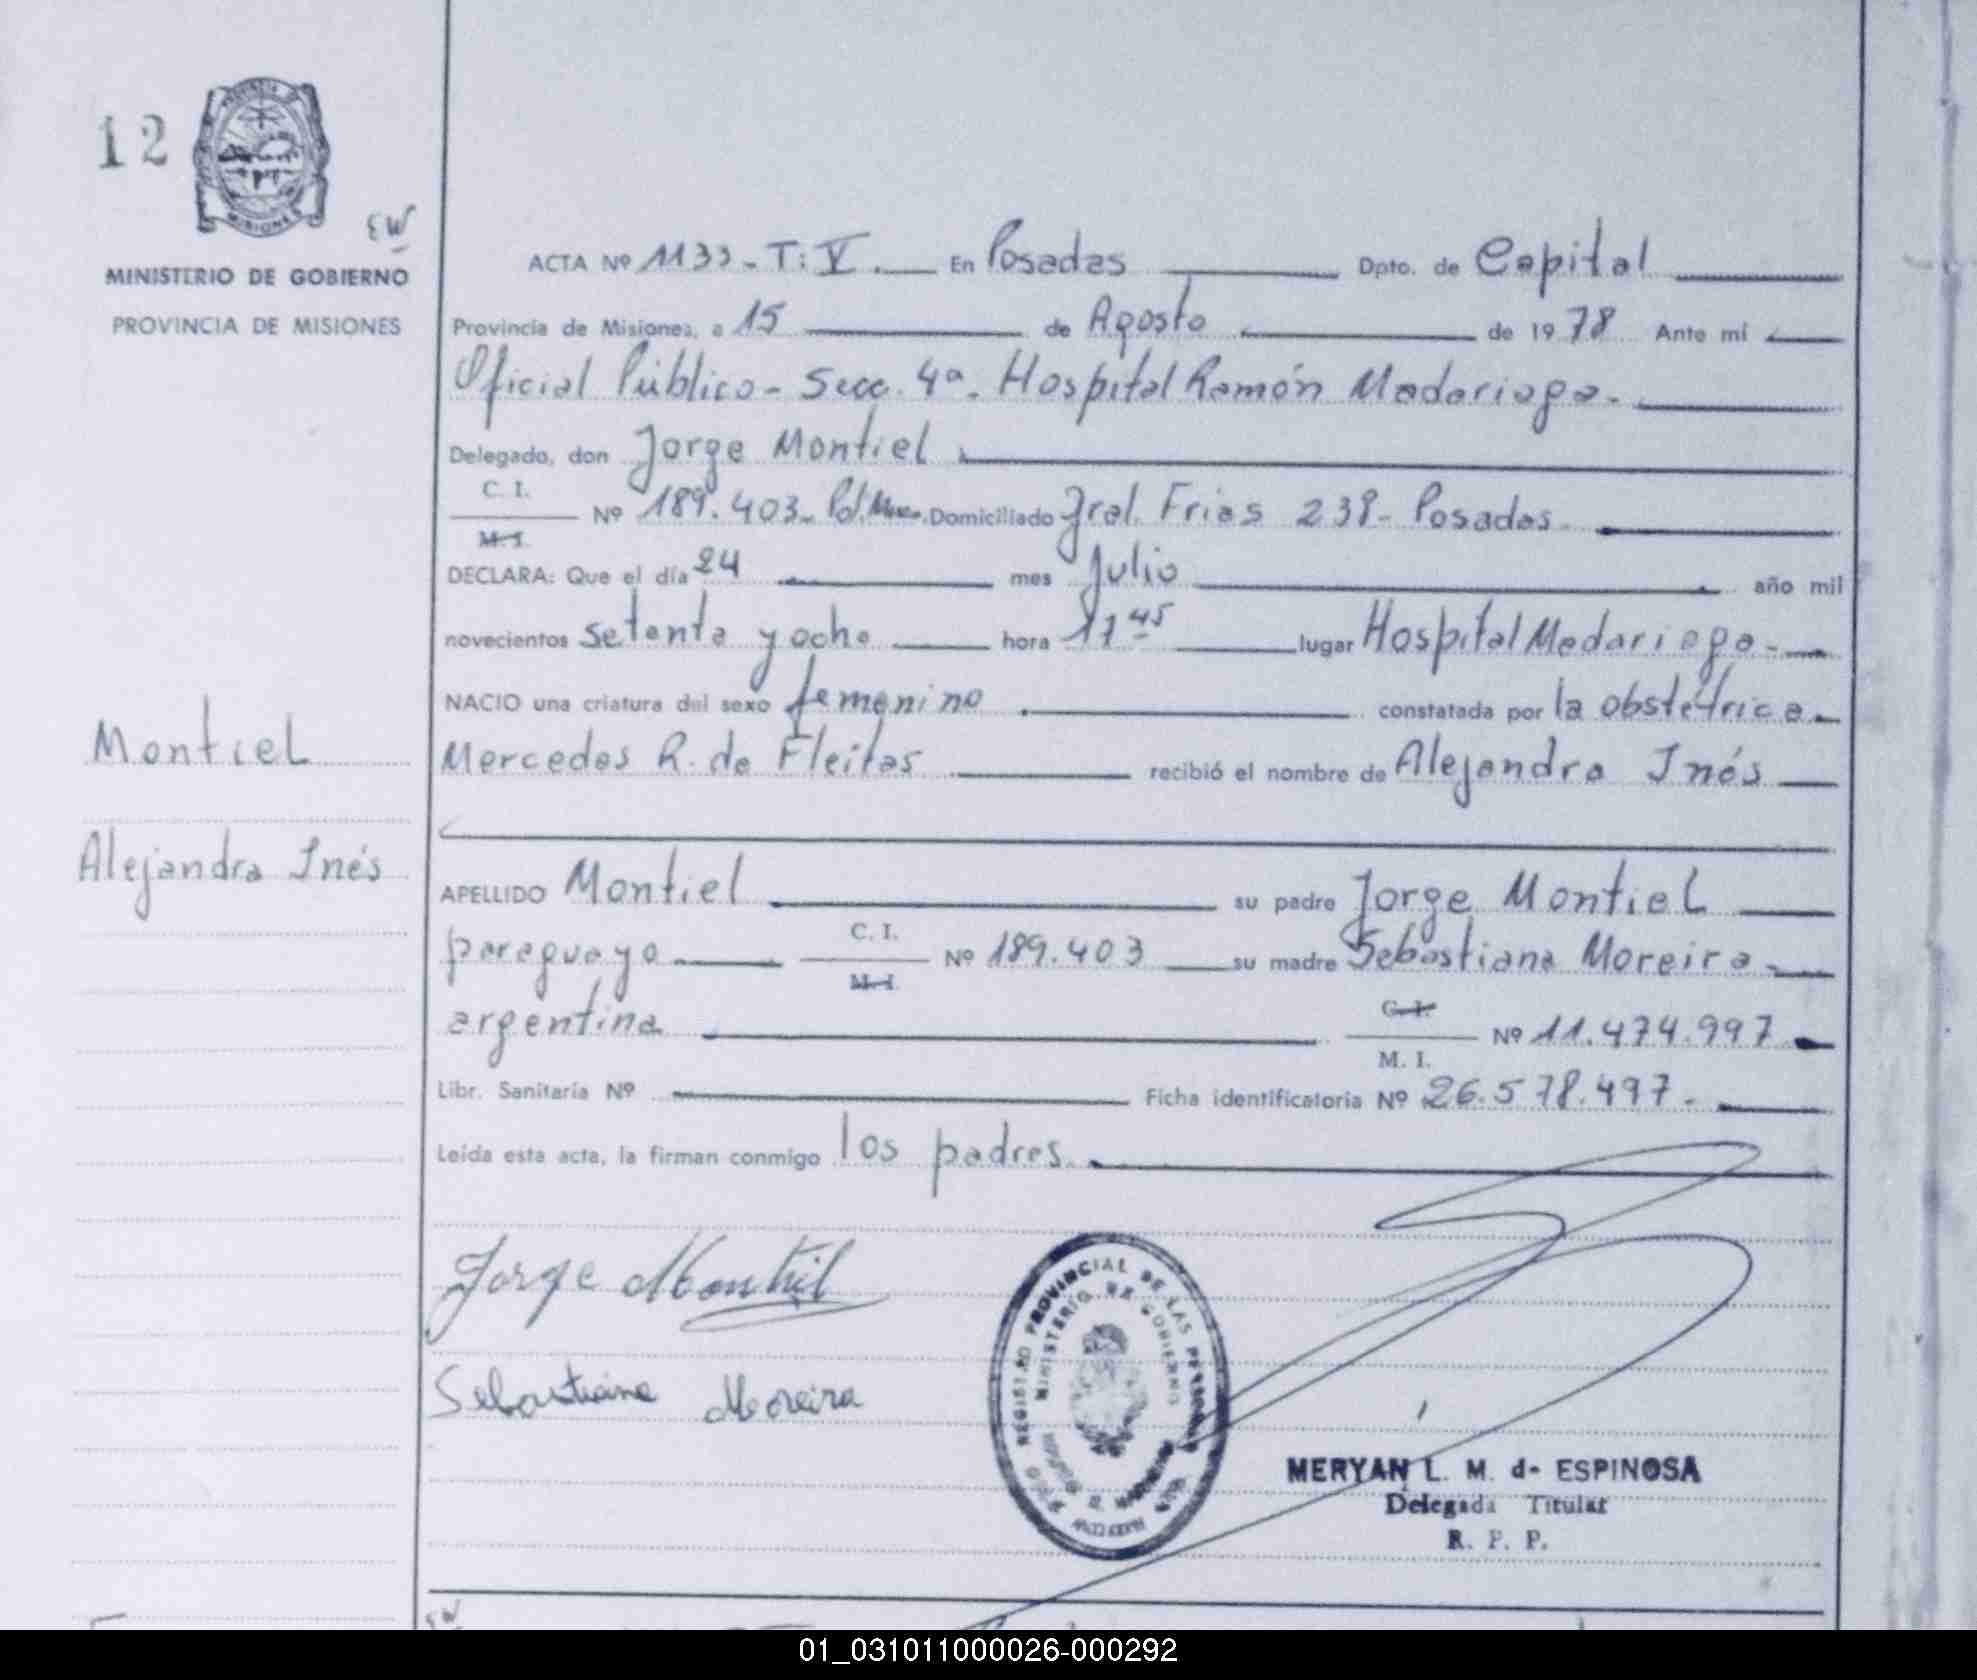 12
PROVINCIA DE
MISIONES
EW
MINISTERIO DE GOBIERNO
PROVINCIA DE MISIONES
Montiel
Alejandra Inés
ACTA Nº 1133 - T: V. En Posadas Dpto. de Capital
Provincia de Misiones, a 15 de Agosto de 1978 Ante mí
Oficial Público - Secc. 4ª. Hospital Ramón Madariaga.
Delegado, don Jorge Montiel
C. I.
Nº 189.403 - Pol. Domiciliado Gral. Frias 238 - Posadas
M. I.
DECLARA: Que el día 24 mes Julio año mil
novecientos setenta y ocho hora 17 45 lugar Hospital Madariaga -
NACIO una criatura del sexo femenino constatada por la obstétrica
Mercedes R. de Fleitas recibió el nombre de Alejandra Inés
APELLIDO Montiel su padre Jorge Montiel
C. I.
paraguayo Nº 189.403 su madre Sebastiana Moreira
M. I.
C. I.
argentina Nº 11.474.997
M. I.
Libr. Sanitaria Nº Ficha identificatoria Nº 26.578.497 -
Leída esta acta, la firman conmigo los padres
Jorge Montiel
Sebastiana Moreira
REGISTRO PROVINCIAL DE LAS PERSONAS
MINISTERIO DE GOBIERNO
MERYAN L. M. de ESPINOSA
Delegada Titular
R. P. P.
EW
01_031011000026-000292